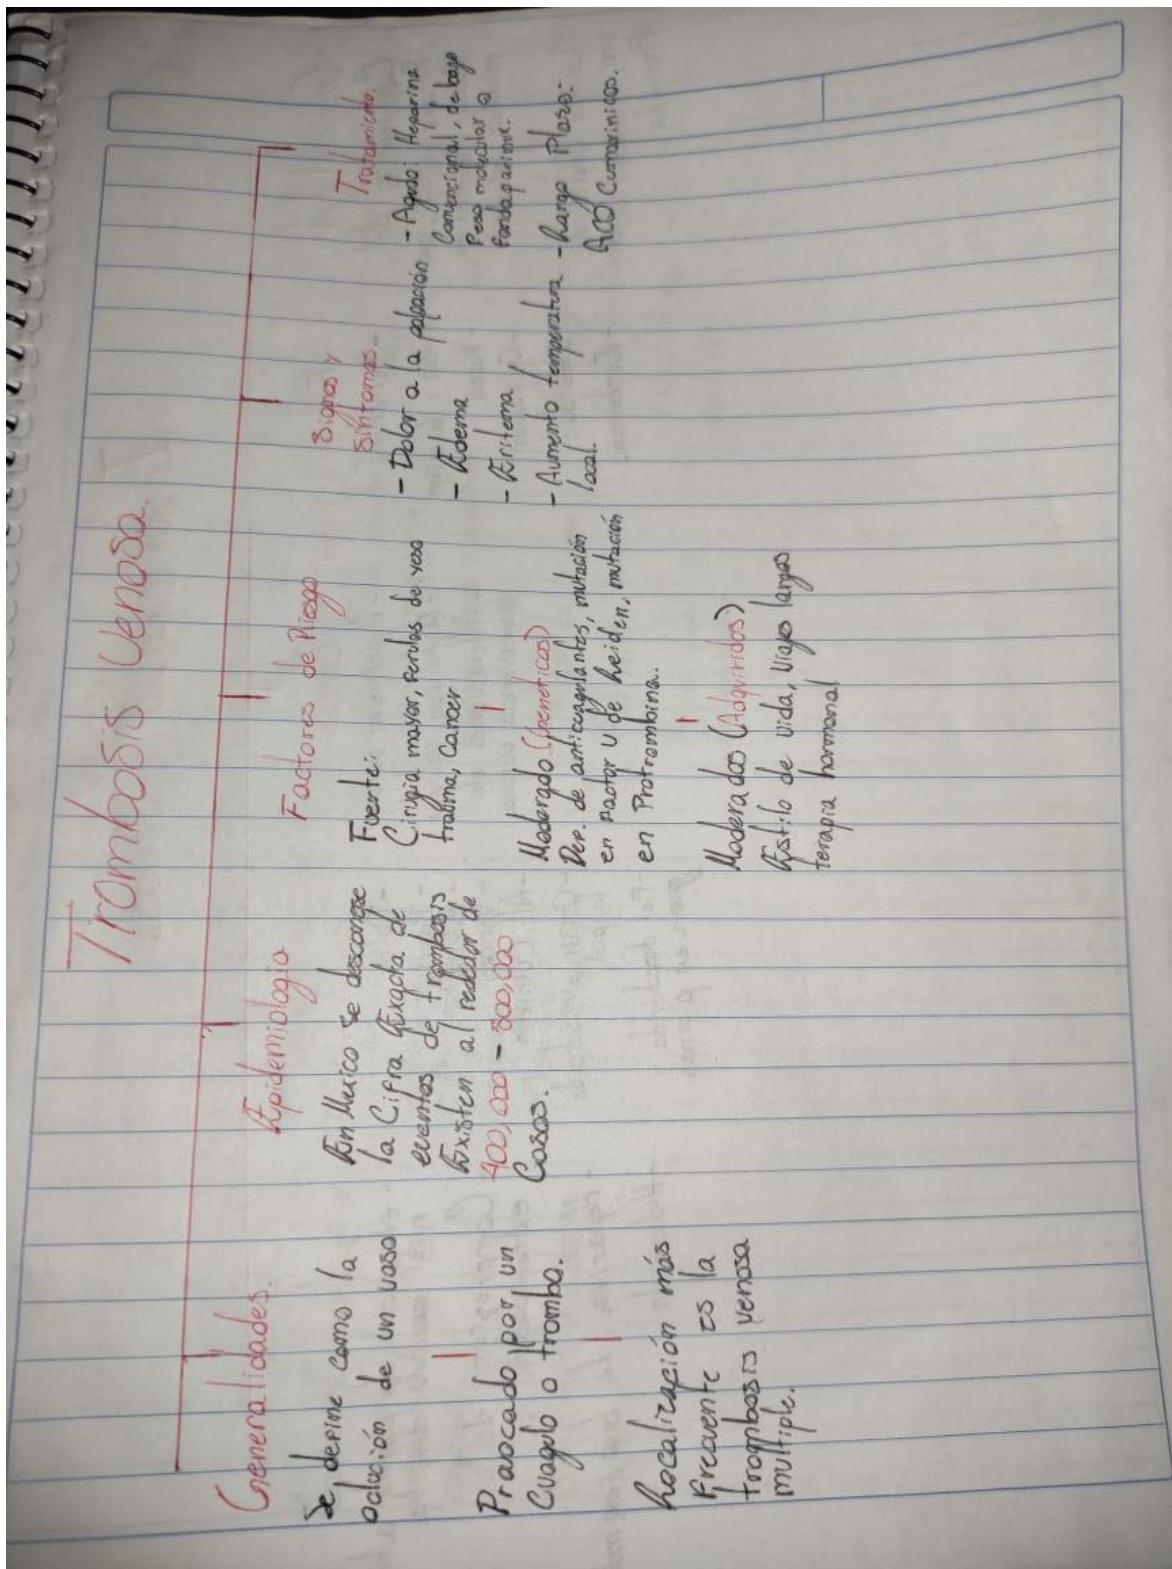 Trombosis Venosa.
Generalidades.
Se define como la
oclución de un vaso
Pravocado por un
Cuagulo o trombo.
Localización más
Frecuente es la
trombosis venosa
multiple.
Epidemiologia
En Mexico se desconose
la Cifra Exacta de
eventos de trombosis
Existen al rededor de
400,000 - 500,000
Casos.
Factores de Riesgo
Fuerte:
Cirugia mayor, de yeso
trauma, Cancer
Moderado (geneticos)
Def. de anticuagulantes, mutación
en Factor V de Leiden, mutación
en Protrombina.
Moderados (Adquiridos)
Estilo de vida, Viajes largos
terapia hormonal
Signos y
Sintomas.
- Dolor a la palpación
- Edema
- Eritema
- Aumento temperatura
local.
Tratamiento.
- Agudo: Heparina
Convencional, de bajo
Peso molecular o
Fondaparinux.
- Largo Plazo:
ACO Cumarinicos.